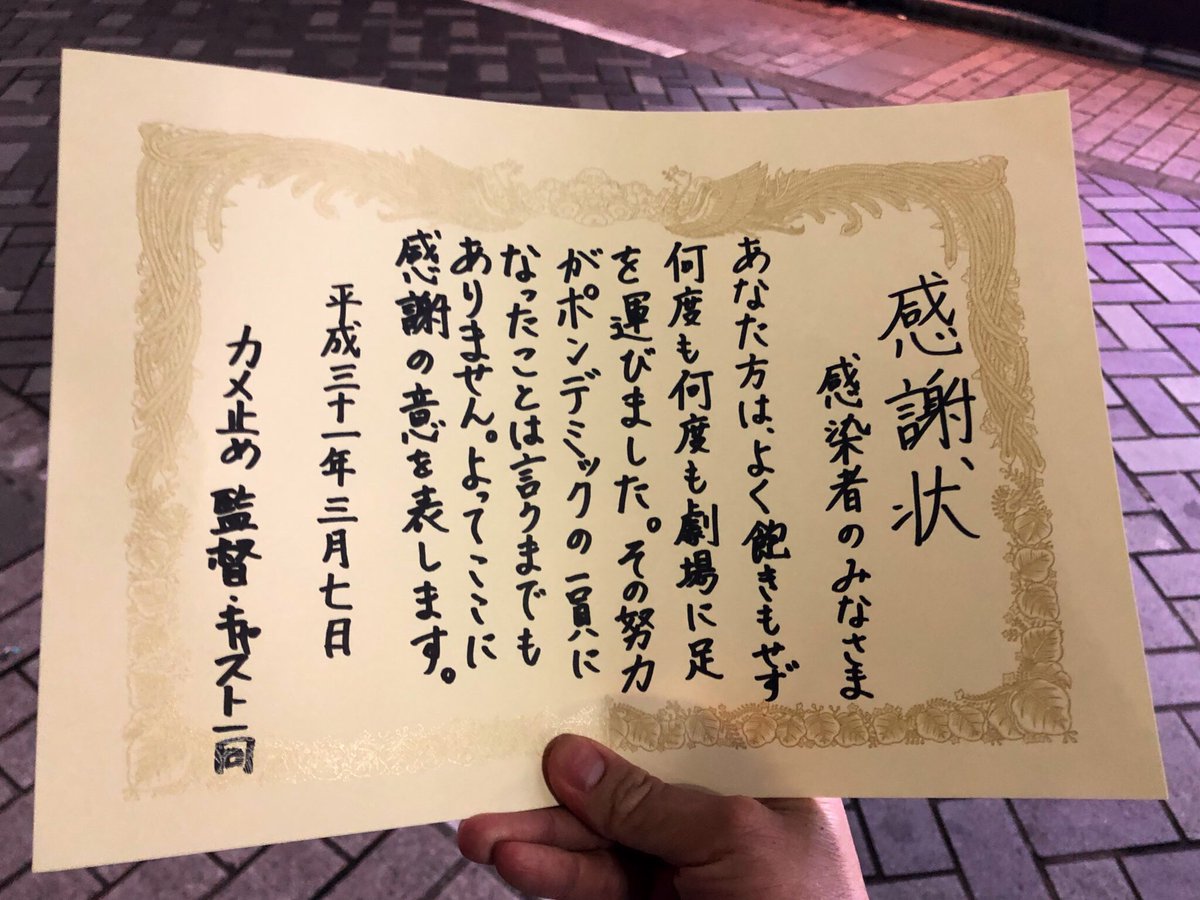 感謝状
感染者のみなさま
あなた方は、よく飽きもせず
何度も何度も劇場に足
を運びました。その努力
がポンデミックの一員に
なったことは言うまでも
ありません。よってここに
感謝の意を表します。
平成三十一年三月七日
カメ止め 監督・キャスト一同